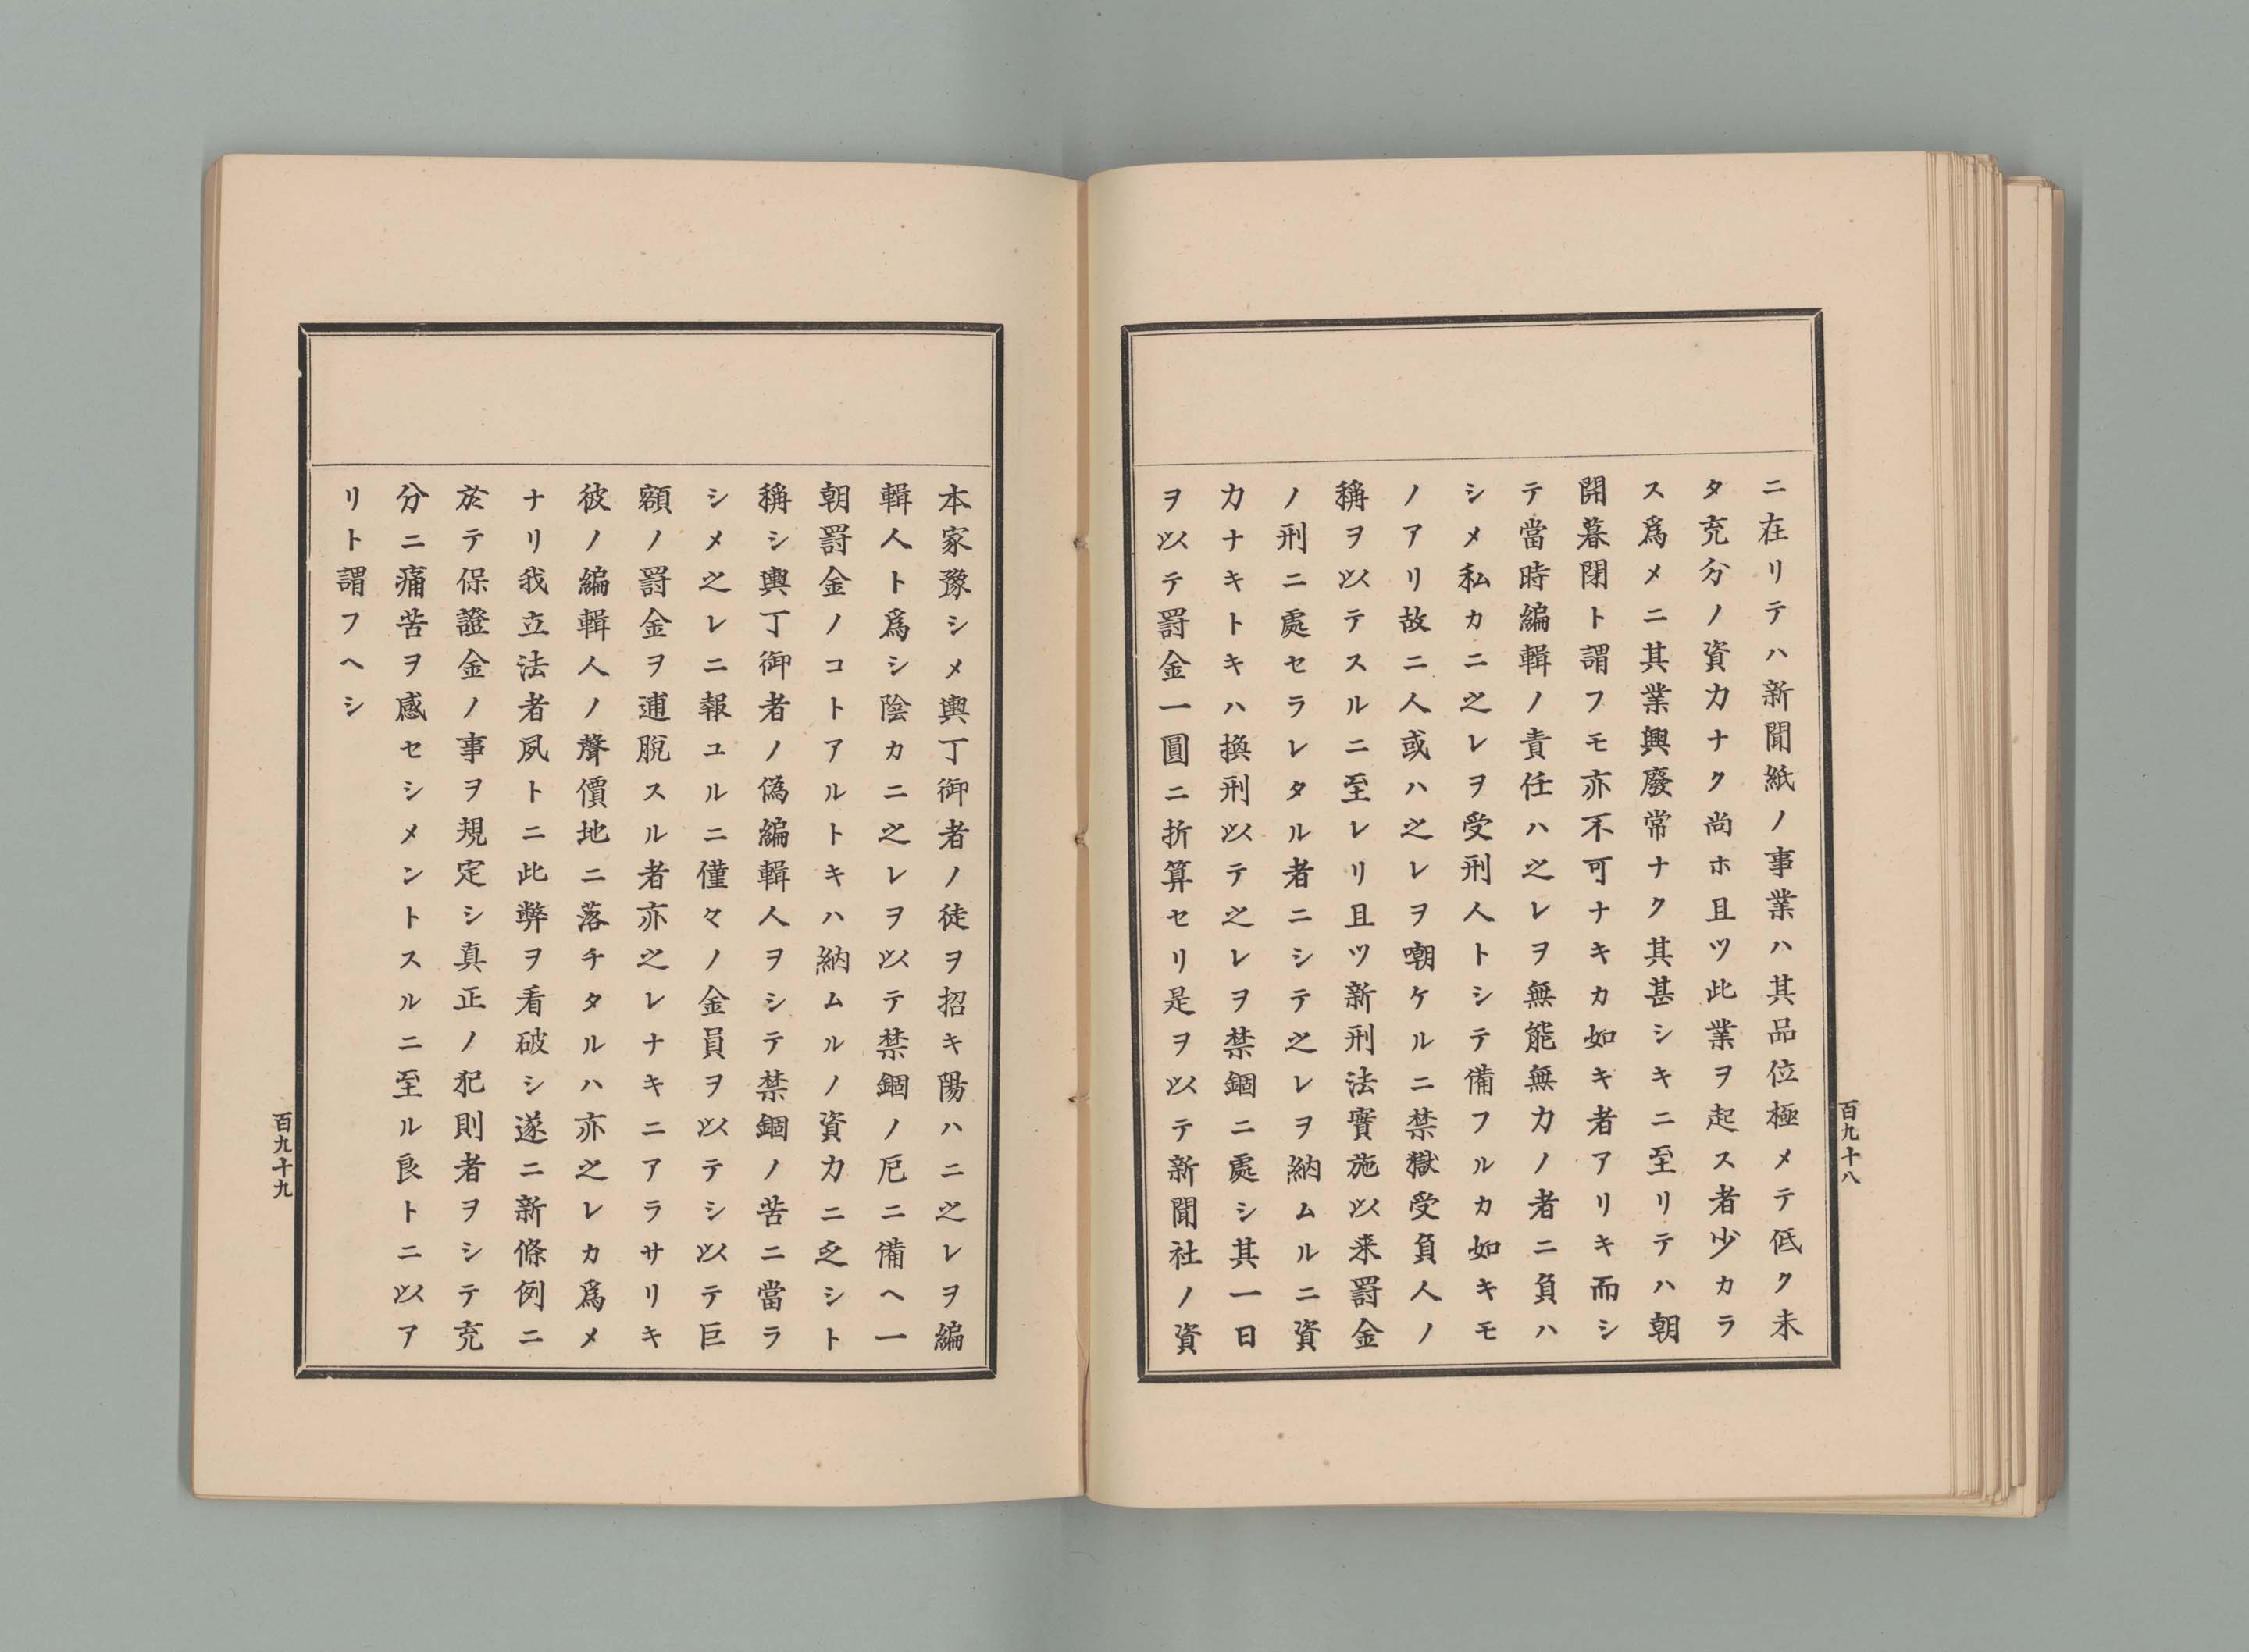 ニ在リテハ新聞紙ノ事業ハ其品位極メテ低ク未
タ充分ノ資力ナク尚ホ且ツ此業ヲ起ス者少カラ
ス爲メニ其業興廢常ナク其甚シキニ至リテハ朝
開暮閉ト謂フモ亦不可ナキカ如キ者アリキ而シ
テ當時編輯ノ責任ハ之レヲ無能無力ノ者ニ負ハ
シメ私カニ之レヲ受刑人トシテ備フルカ如キモ
ノアリ故ニ人或ハ之レヲ嘲ケルニ禁獄受負人ノ
稱ヲ以テスルニ至レリ且ツ新刑法實施以来罰金
ノ刑ニ處セラレタル者ニシテ之レヲ納ムルニ資
力ナキトキハ換刑以テ之レヲ禁錮ニ處シ其一日
ヲ以テ罰金一圓ニ折算セリ是ヲ以テ新聞社ノ資
百九十八
本家豫シメ輿丁御者ノ徒ヲ招キ陽ハニ之レヲ編
輯人ト爲シ陰カニ之レヲ以テ禁錮ノ厄ニ備ヘ一
朝罰金ノコトアルトキハ納ムルノ資力ニ乏シト
稱シ輿丁御者ノ偽編輯人ヲシテ禁錮ノ苦ニ當ラ
シメ之レニ報ユルニ僅々ノ金員ヲ以テシ以テ巨
額ノ罰金ヲ逋脫スル者亦之レナキニアラサリキ
彼ノ編輯人ノ聲價地ニ落チタルハ亦之レカ爲メ
ナリ我立法者夙トニ此弊ヲ看破シ遂ニ新條例ニ
於テ保證金ノ事ヲ規定シ真正ノ犯則者ヲシテ充
分ニ痛苦ヲ感セシメントスルニ至ル良トニ以ア
リト謂フヘシ
百九十九